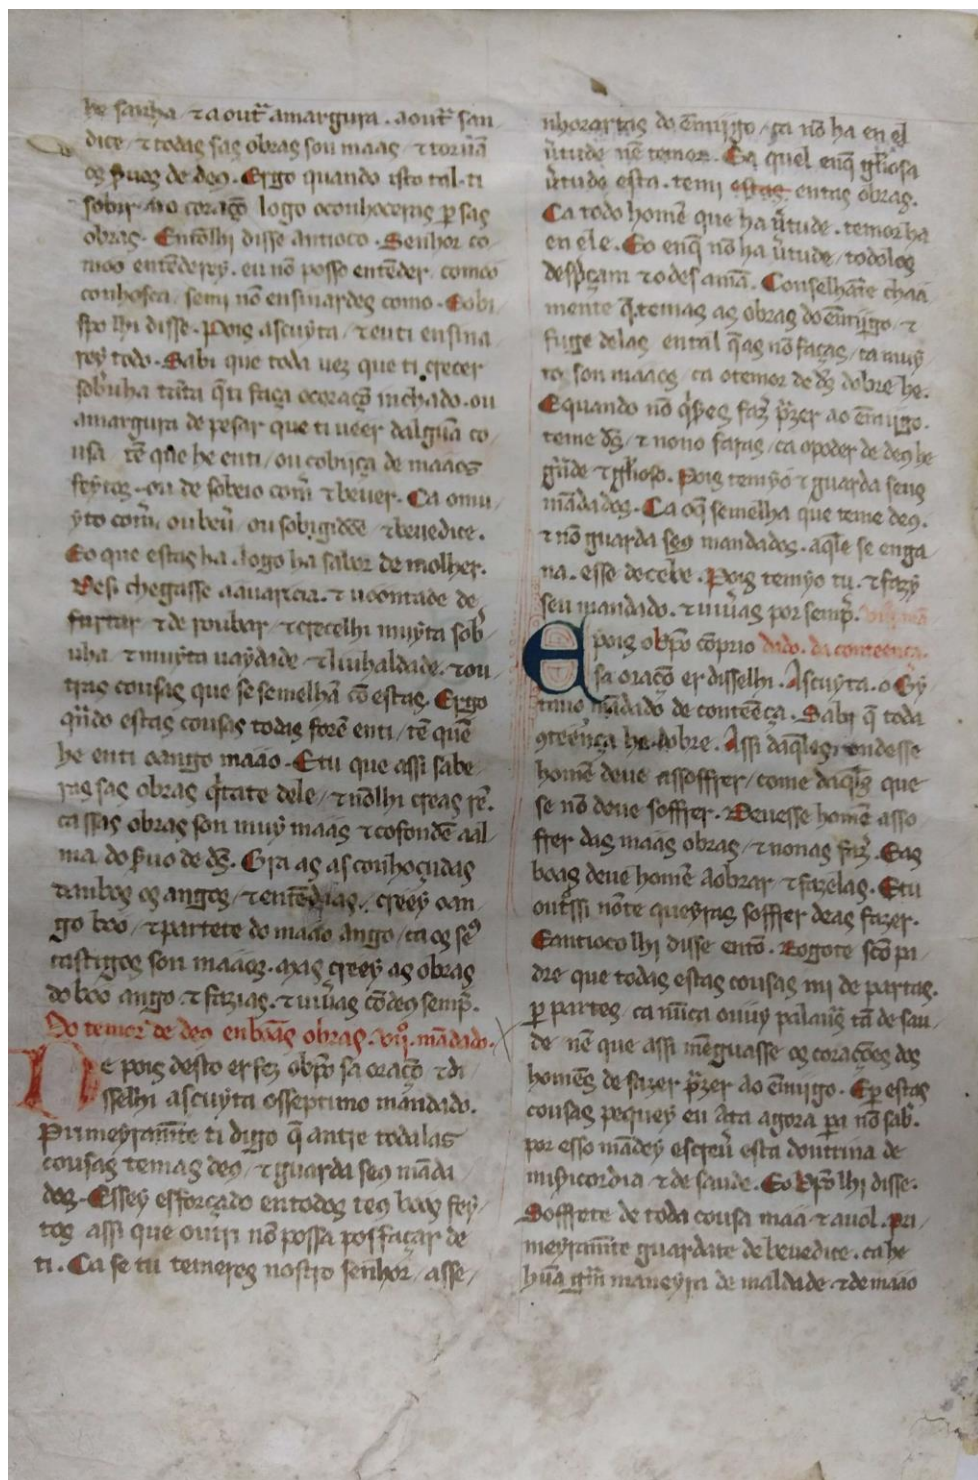 he sanha / ⁊ a outͣ amargura . a outͣ san
dice / ⁊ todas sas obras son maas / ⁊ tornā
os s̃uos de deꝯ . Ergo quando isto tal ti
sobir ao coraçō logo o conhoceras ꝑ sas
obras . Entōlhi disse antioco . Senhor co
moo entēderey . eu nō posso entēder / comoo
conhosca / semi nō ensinardes como . Eo bi
spo lhi disse . Pois ascuyta / ⁊ eu ti ensina
rey todo . Sabi que toda vez que ti crecer
sob̃uha tāta q̄ ti faça o coraçō inchado . ou
amargura de pesar que ti veer dalgūa co
usa / tē que he en ti / ou cobijça de maaos
feytos . ou de sobeio com̃ ⁊ bever . Ca o mu
yto com̃ . ou beũ / ou sobigidōoē ⁊ bevedice .
Eo que estas ha . logo ha sabor de molher .
Desi chegasse a auaricia . ⁊ uoontade de
furtar / ⁊ de roubar / ⁊ crecelhi muyta sob̃
uha / ⁊ muyta uaydade / ⁊ luhaldade . ⁊ ou
tras cousas que se semelhā cō estas . Ergo
qͣ̃do estas cousas todas forē en ti / tē quē
he en ti o ango maao . E tu que assi sabe
ras sas obras qͥtate dele / ⁊ nōlhi creas rē .
ca ssas obras son muy maas ⁊ cofondē a al
ma . do s̃uo de dꝫ . Ora as as conhoçudas
tanbos os angos / ⁊ entēdias . creey o an
go boo / ⁊ partete do maao ango / ca os seꝯ
castigos son maaos . mas creey as obras
do boo ango ⁊ fazias . ⁊ uiũas cō deꝯ semp̃ .
Do temor de deꝯ en bōas obras . vijº . mādado .
De pois desto er fez o bp̃o sa oraçō ⁊ di
sselhi ascuyta o sseptimo mandado .
Primeyramēte ti digo q̄ antre todalas
cousas temas deꝯ / ⁊ guarda seꝯ māda
dos . E ssey esforçado en todos teꝯ boos fey
tos assi que outri nō possa posfaçar de
ti . Ca se tu temeres nostro senhor / asse
nhorartas do ēmijgo / ca nō ha en el
ũtude nē temor . Ca quel en q̄ gl̃iosa
ũtude esta . temi estas en tas obras .
Ca todo homē que ha ũtude . temor ha
en ele . Eo en q̄ nō ha ũtude / todolos
desp̃çam ⁊ o desamā . Conselhāte chaā
mente q̄ temas as obras do ēmijgo / ⁊
fuge delas en tal q̄ as nō faças / ca muy
to son maaos / ca o temor de dꝫ dobre he .
E quando nō qͥseres faz̃ pͣzer ao ēmijgo .
teme dꝫ / ⁊ nono faras / ca o poder de deꝯ he
gͣnde ⁊ gl̃ioso . Pois temyo ⁊ guarda seus
mādados . Ca o q̄ semelha que teme deꝯ .
⁊ nō guarda seꝯ mandados . aq̄le se enga
na . esse decebe . Pois temyo tu . ⁊ fazy
seu mandado . ⁊ uiũas por semp̃ .
E pois o bp̃o cōprio dado . da conteença .
sa oraçō er disselhi . Ascuyta . o oy
tauo mādado de conteēça . Sabi q̄ toda
ꝯteēnça he dobre . Assi daq̄les ondesse
homē deue assoffrer / come daq̄les que
se nō deue soffrer . Deuesse homē asso
ffrer das maas obras / ⁊ nonas faz̃ . E as
boas deue homē a obrar ⁊ fazelas . E tu
outͥssi nōte queyras soffrer de as fazer .
E antioco lhi disse entō . Rogote scō pa
dre que todas estas cousas mi de partas .
ꝑ partes / ca nūca ouuy palauͣs tā de sau
de nē que assi mēguasse os corações dos
homēs de fazer pͣzer ao ēmijgo . E ꝑ estas
cousas pequey eu ata agora ꝑa nō sab̃ .
por esso mādey escreũ esta doutrina de
misericordia ⁊ de saude . Eo bp̃o lhi disse .
Soffrete de toda cousa maa ⁊ auol . Pri
meyramēte guardate de bevedice . ca he
hūa grā maneyra de maldade ⁊ de maao